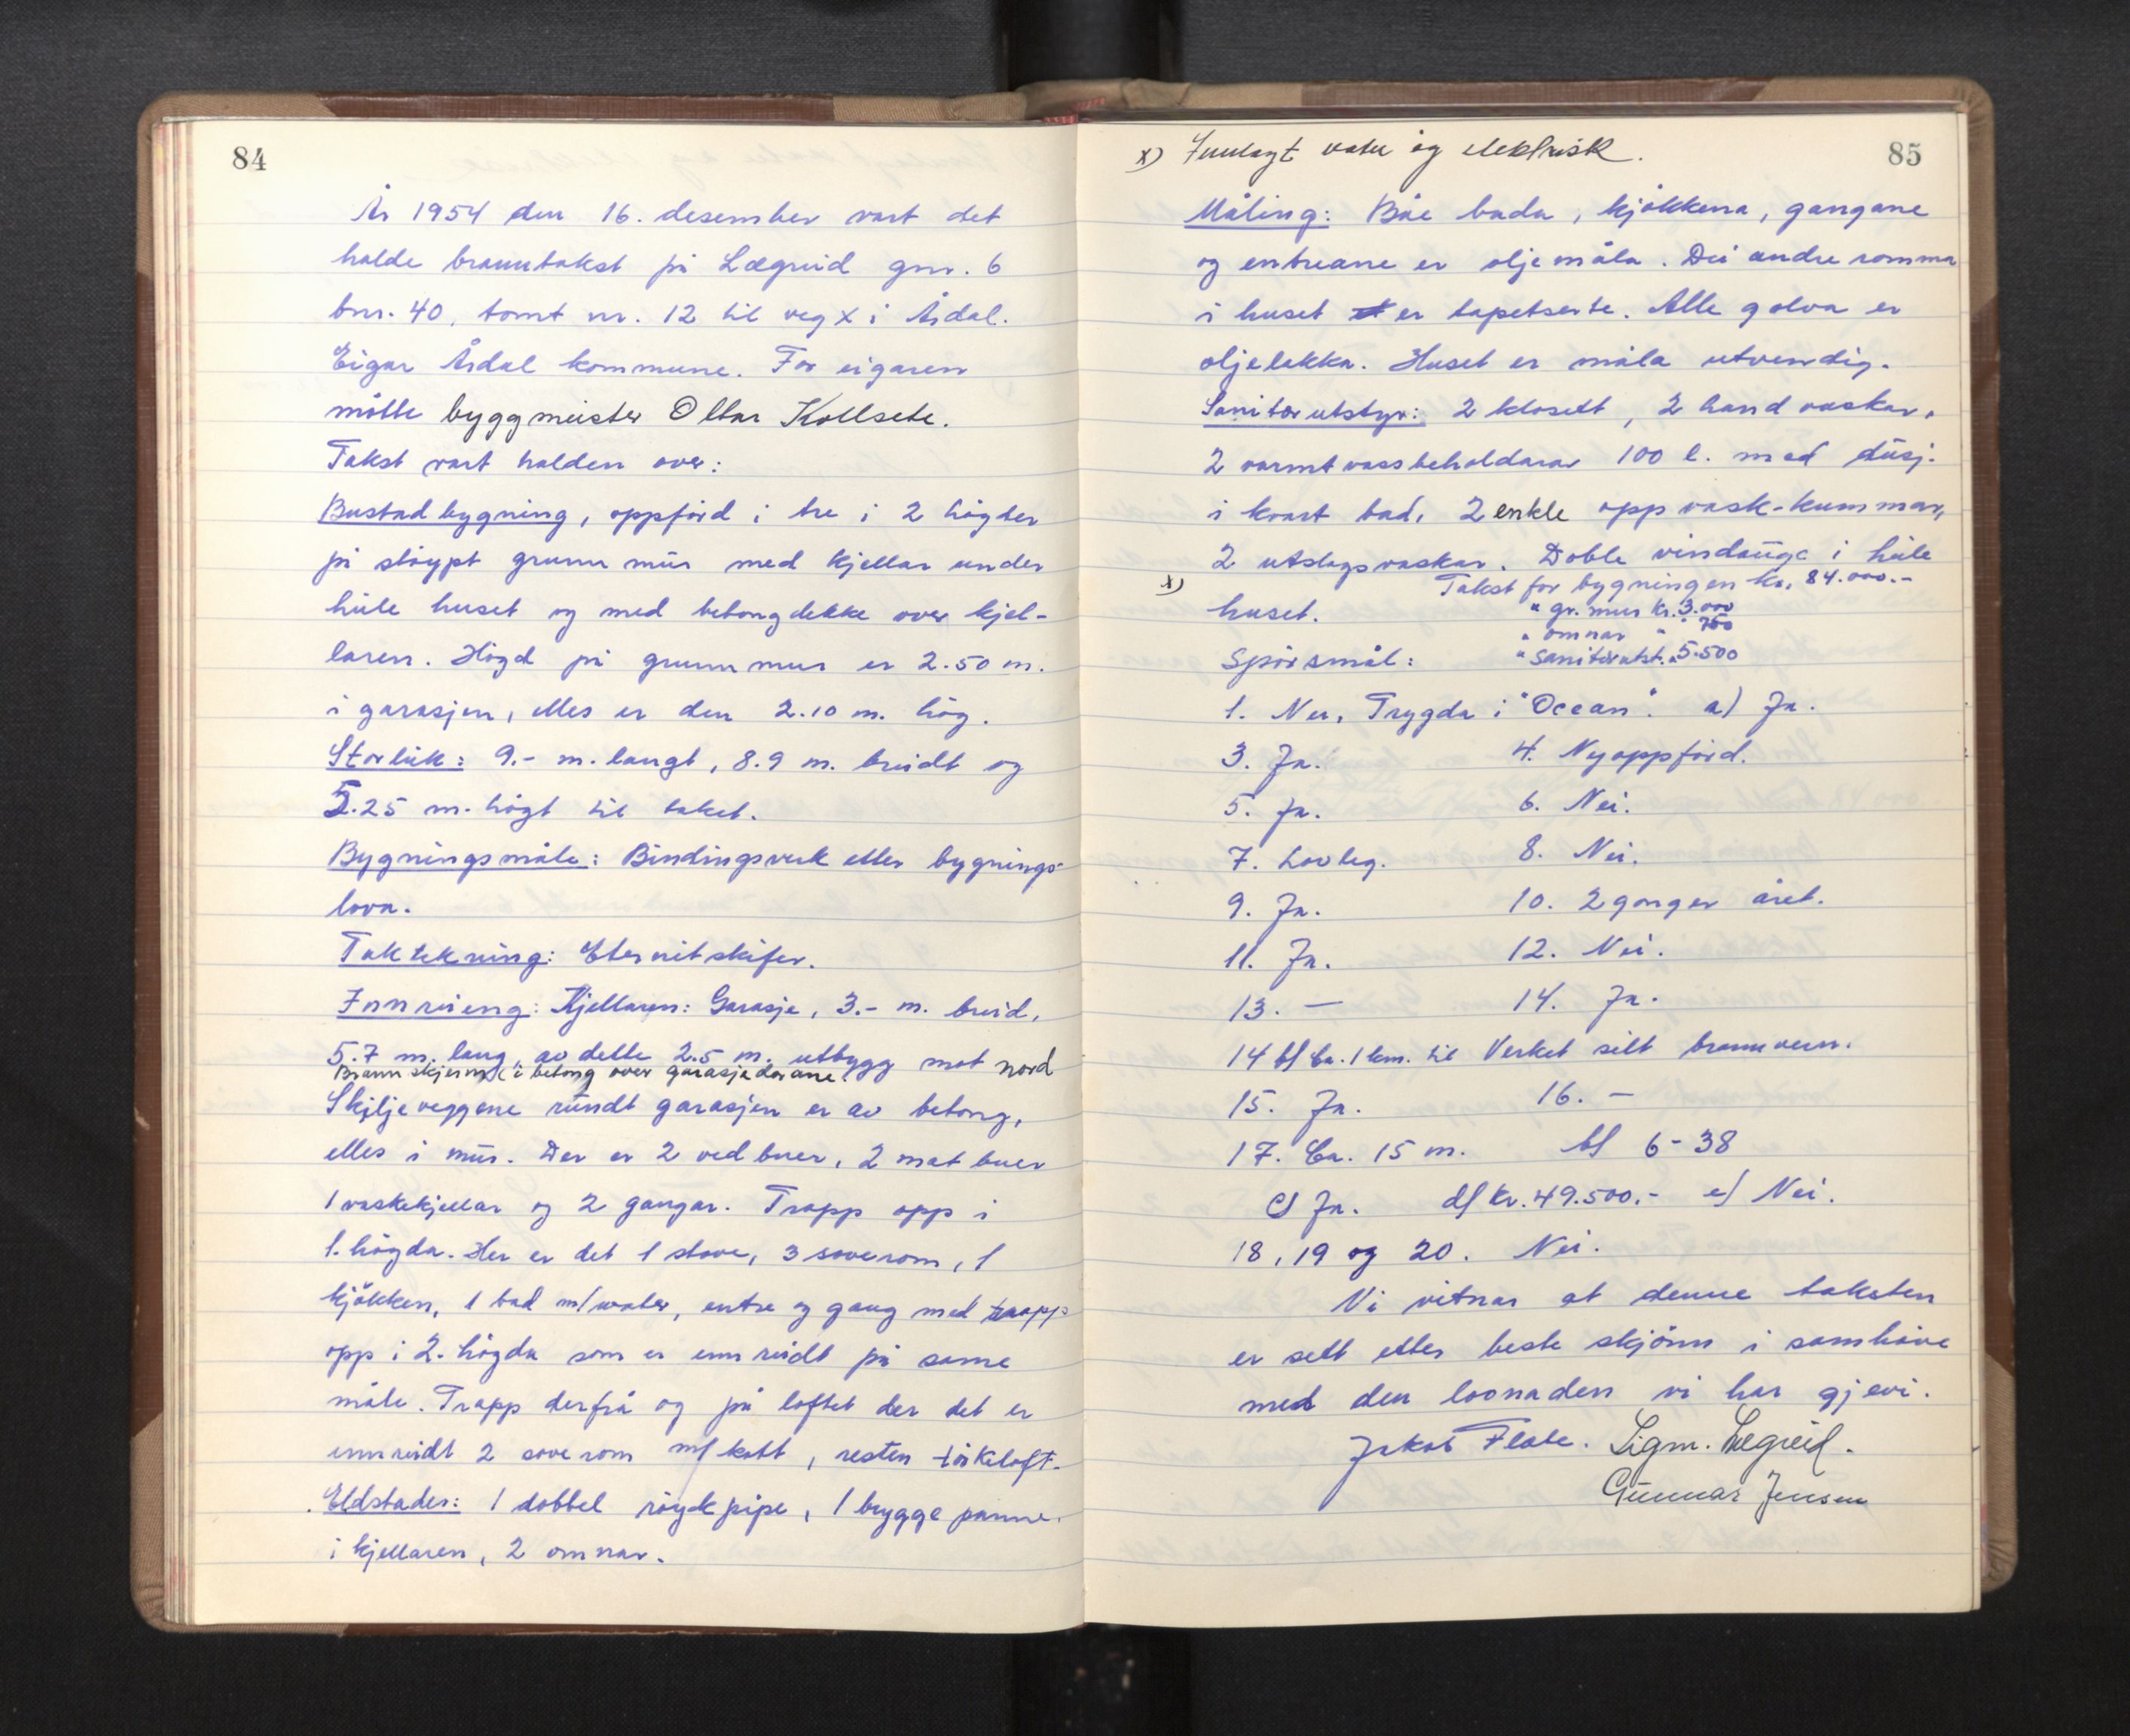 84
År 1954 den 16. desember vart det
halde branntakst på Lægreid gnr. 6
bnr. 40, tomt nr. 12 til veg X i Årdal.
Eigar Årdal kommune. For eigaren
møtte byggmeister Ottar Kollsete.
Takst vart halden over:
Bustadbygning, oppførd i tre i 2 høgder
på støypt grunnmur med kjellar under
heile huset og med betongdekke over kjel-
laren. Høgd på grunnmur er 2.50 m.
i garasjen, elles er den 2.10 m. høg.
Storleik: 9.- m. langt, 8.9 m. breidt og
5.25 m. høgt til taket.
Bygningsmåte: Bindingsverk etter bygnings-
lova.
Taktekning: Eternitskifer.
Innreieng: Kjellaren: Garasje, 3.- m. breid,
5.7 m. lang, av dette 2.5 m. utbygg mot nord
Brannskjerm i betong over garasjedørane.
Skiljeveggene rundt garasjen er av betong,
elles i mur. Der er 2 vedbuer, 2 matbuer
1 vaskekjellar og 2 gangar. Trapp opp i
1. høgda. Her er det 1 stove, 3 soverom, 1
kjøkken, 1 bad m/water, entre og gang med trapp
opp i 2. høgda som er innreidt på same
måte. Trapp derfrå og på loftet der det er
innreidt 2 soverom m/kott, resten tørkeloft.
Eldstader: 1 dobbel røykpipe, 1 bryggepanne.
i kjellaren, 2 omnar.
85
x) Innlagt vatn og elektrisk.
Måling: Båe bada, kjøkkena, gangane
og entreane er oljemåla. Dei andre romma
i huset er tapetserte. Alle golva er
oljelakka. Huset er måla utvendig.
Sanitærutstyr: 2 klosett, 2 handvaskar,
2 varmtvassbeholdarar 100 l. med dusj.
i kvart bad, 2 enkle oppvask-kummar,
2 utslagsvaskar. Doble vindauge i heile
x)
huset.
Takst for bygningen kr. 84.000.-
" gr. mur kr. 3.000
" omnar " 750
" sanitærutst. " 5.500
Spørsmål:
1. Nei, Trygda i "Ocean". a) Ja.
3. Ja. 4. Nyoppførd.
5. Ja. 6. Nei.
7. Lovleg. 8. Nei.
9. Ja. 10. 2 gonger året.
11. Ja. 12. Nei.
13. — 14. Ja.
14 b/ Ca. 1 km. til Verket sitt brannvern.
15. Ja. 16. —
17. Ca. 15 m. b/ 6-38
c/ Ja. d/ Kr. 49.500.- e/ Nei.
18, 19 og 20. Nei.
Vi vitnar at denne taksten
er sett etter beste skjønn i samhøve
med den lovnaden vi har gjevi.
Jakob Flate. Sigm. Lægreid.
Gunnar Jensen